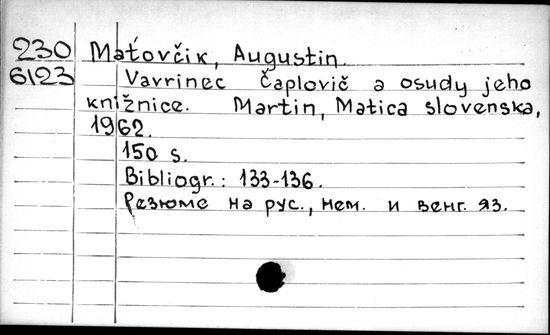 230 Maťovčik, Augustin.
6123 Vavrinec Čaplovič a osudy jeho
knižnice. Martin, Matica slovenska,
1962.
150 s.
Bibliogr.: 133-136.
Резюме на рус., нем. и венг. яз.